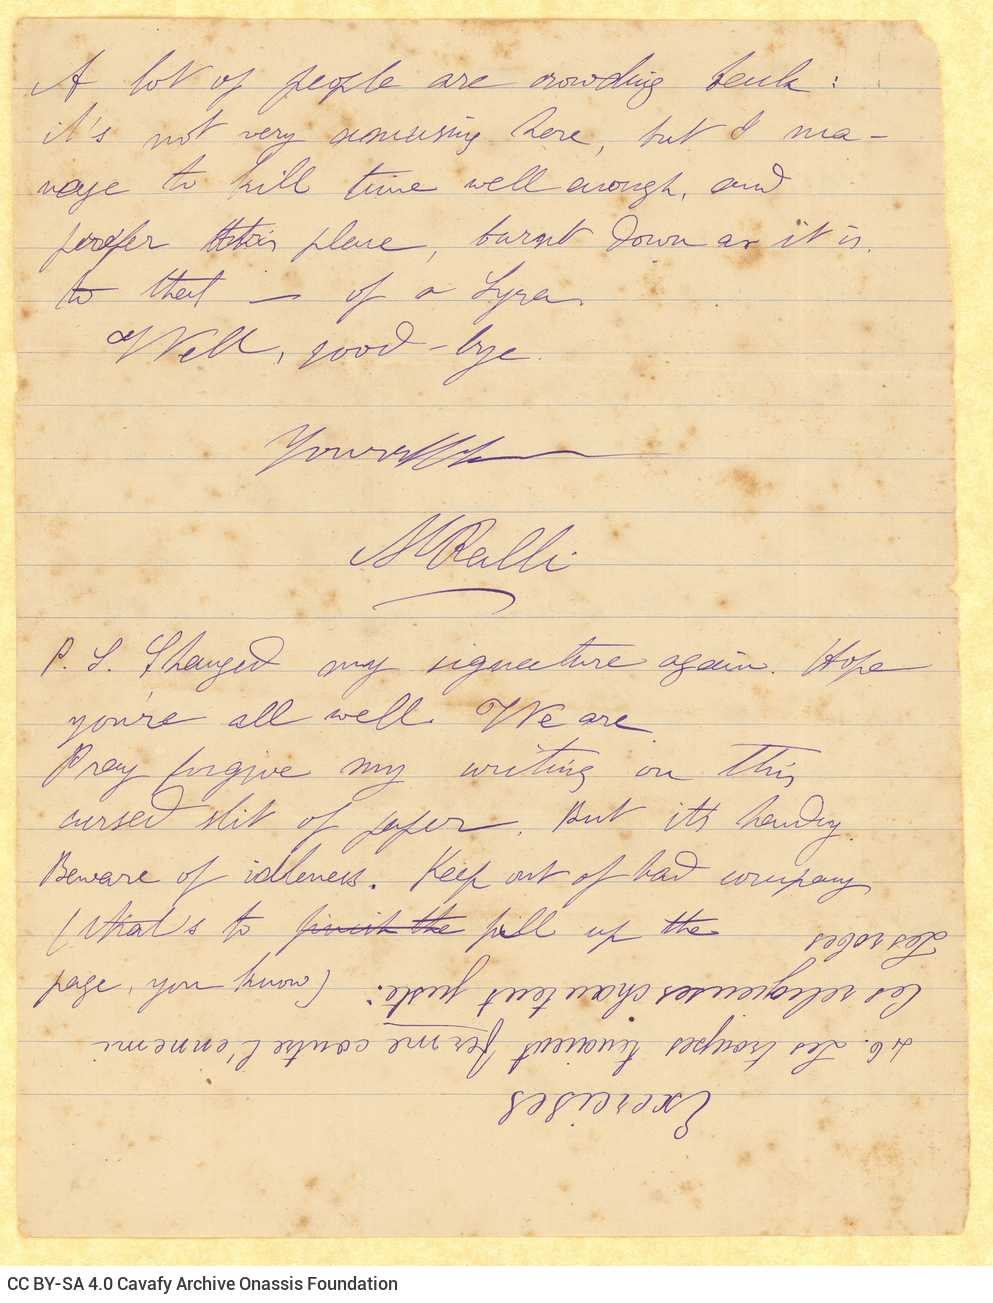 A lot of people are crowding back:
it's not very amusing here, but I ma-
nage to kill time well enough, and
prefer this place, burnt down as it is,
to that — of a Lyra.
Well, good-bye.
Yours
MRalli
P. S. Changed my signature again. Hope
you're all well. We are
Pray forgive my writing on this
cursed slit of paper. But it's handy.
Beware of idleness. Keep out of bad company
(that's to finish the fill up the
page, you know)
Exercises
46. Les troupes tinrent ferme contre l'ennemi
Les religieuses chantent juste:
Les robes
CC BY-SA 4.0 Cavafy Archive Onassis Foundation